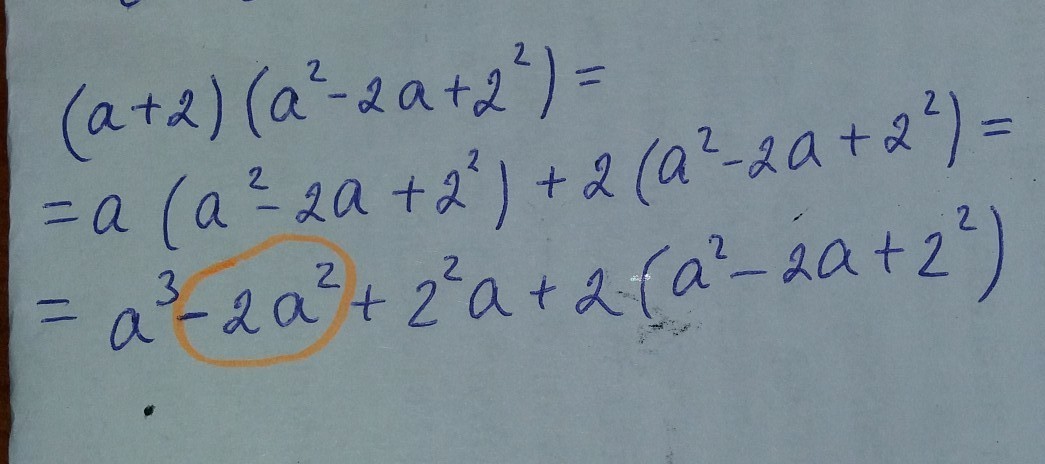 (a+2)(a²-2a+2²)=
=a(a²-2a+2²)+2(a²-2a+2²)=
=a³-2a²+2²a+2(a²-2a+2²)